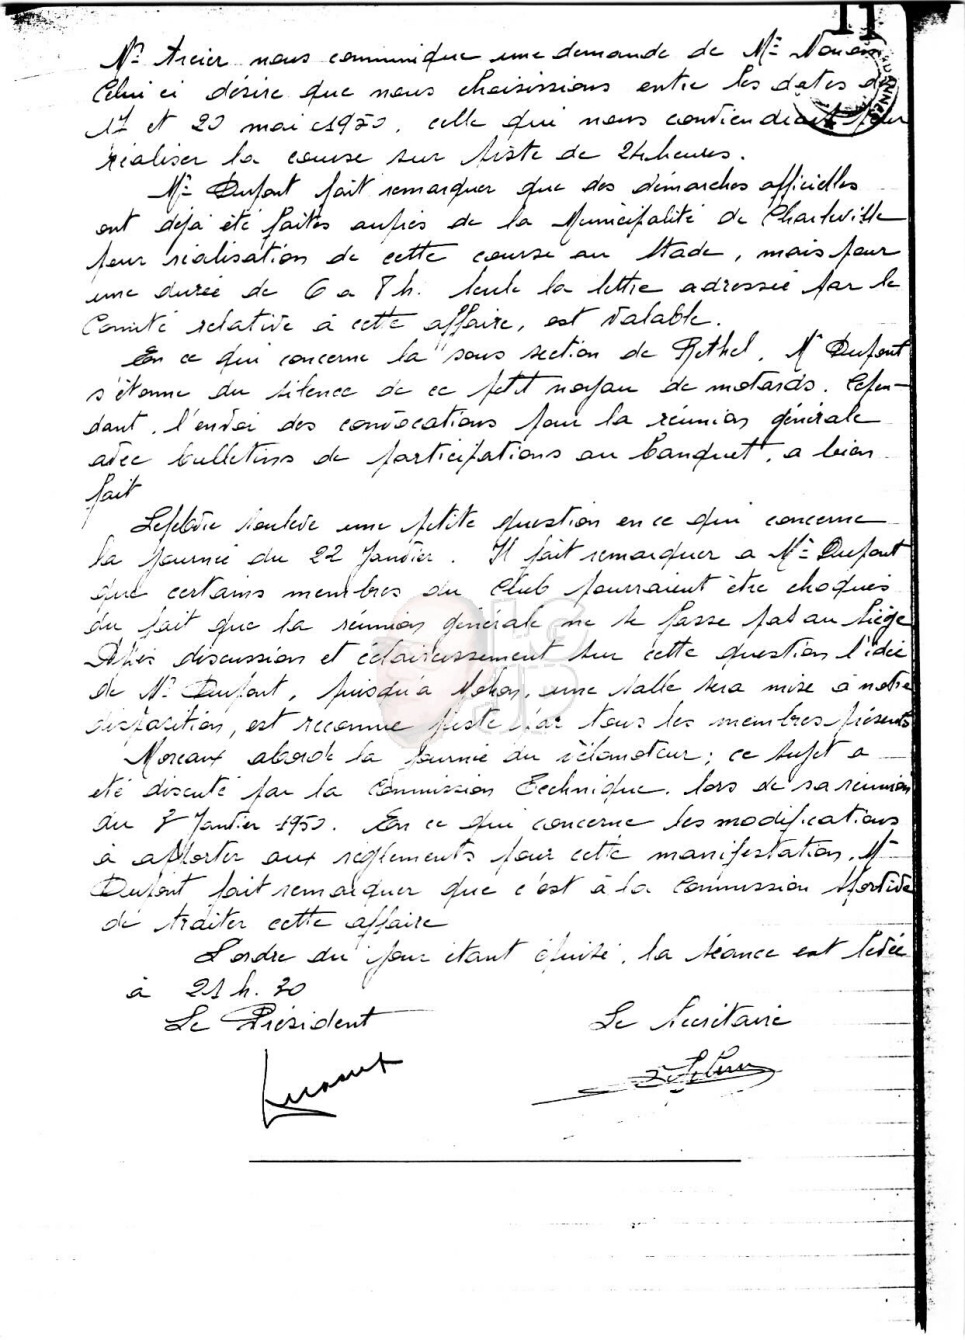 11
Mr Arcier nous communique une demande de Mr
Celui ci désire que nous choisissions entre les dates d
17 et 20 mai 1950, celle qui nous conviendrait pour
réaliser la course sur piste de 24 heures.
Mr Dupont fait remarquer que des démarches officielles
ont déjà été faites auprès de la Municipalité de Charleville
pour réalisation de cette course au Stade, mais pour
une durée de 6 a 8 h. seule la lettre adressée par le
Comité relative à cette affaire, est valable.
En ce qui concerne la sous section de Rethel, Mr Dupont
s'étonne du silence de ce petit noyau de motards. Cepen-
dant, l'envoi des convocations pour la réunion générale
avec bulletins de participations au banquet, a bien
fait
Lefebvre soulève une petite question en ce qui concerne
la journée du 22 Janvier. Il fait remarquer a Mr Dupont
que certains membres du Club pourraient être choqués
du fait que la réunion générale ne se passe pas au Siège
Après discussion et éclaircissement sur cette question l'idée
de Mr Dupont, puisqu'a Mohon, une salle sera mise à notre
disposition, est reconnue juste par tous les membres présents
Moreaux aborde la journée du vélomoteur; ce sujet a
été discuté par la Commission Technique, lors de sa réunion
du 7 Janvier 1950. En ce qui concerne les modifications
à apporter aux règlements pour cette manifestation, Mr
Dupont fait remarquer que c'est à la Commission Sportive
de traiter cette affaire
L'ordre du jour étant épuisé, la séance est levée
à 21 h. 30
Le Président Le Secrétaire